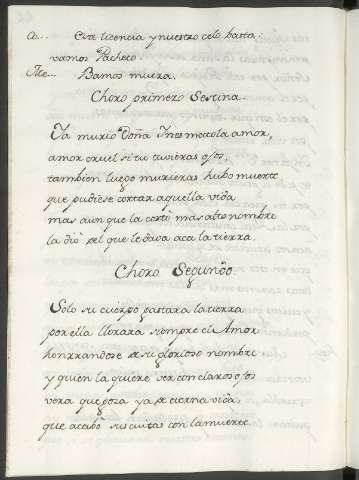 Co... Esa licencia y nuestro celo basta:
vamos Pacheco.
Pae... Bamos muera.
Choro primero Sestina.
Ya murio Doña Ines matola amor,
amor cruel si tu tuvieras ojos,
tambien luego murieras hubo muerte
que pudiese cortar aquella vida
mas aunque la cortó mas alto nombre
la dió del que le dava aca la tierra.
Choro Segundo.
Solo su cuerpo gastara la tierra
por ella llorara siempre el Amor
honrrandose de su glorioso nombre
y quien la quiere ver con claros ojos
vera que goza ya de eterna vida,
que acabó sus cuitas con la muerte.